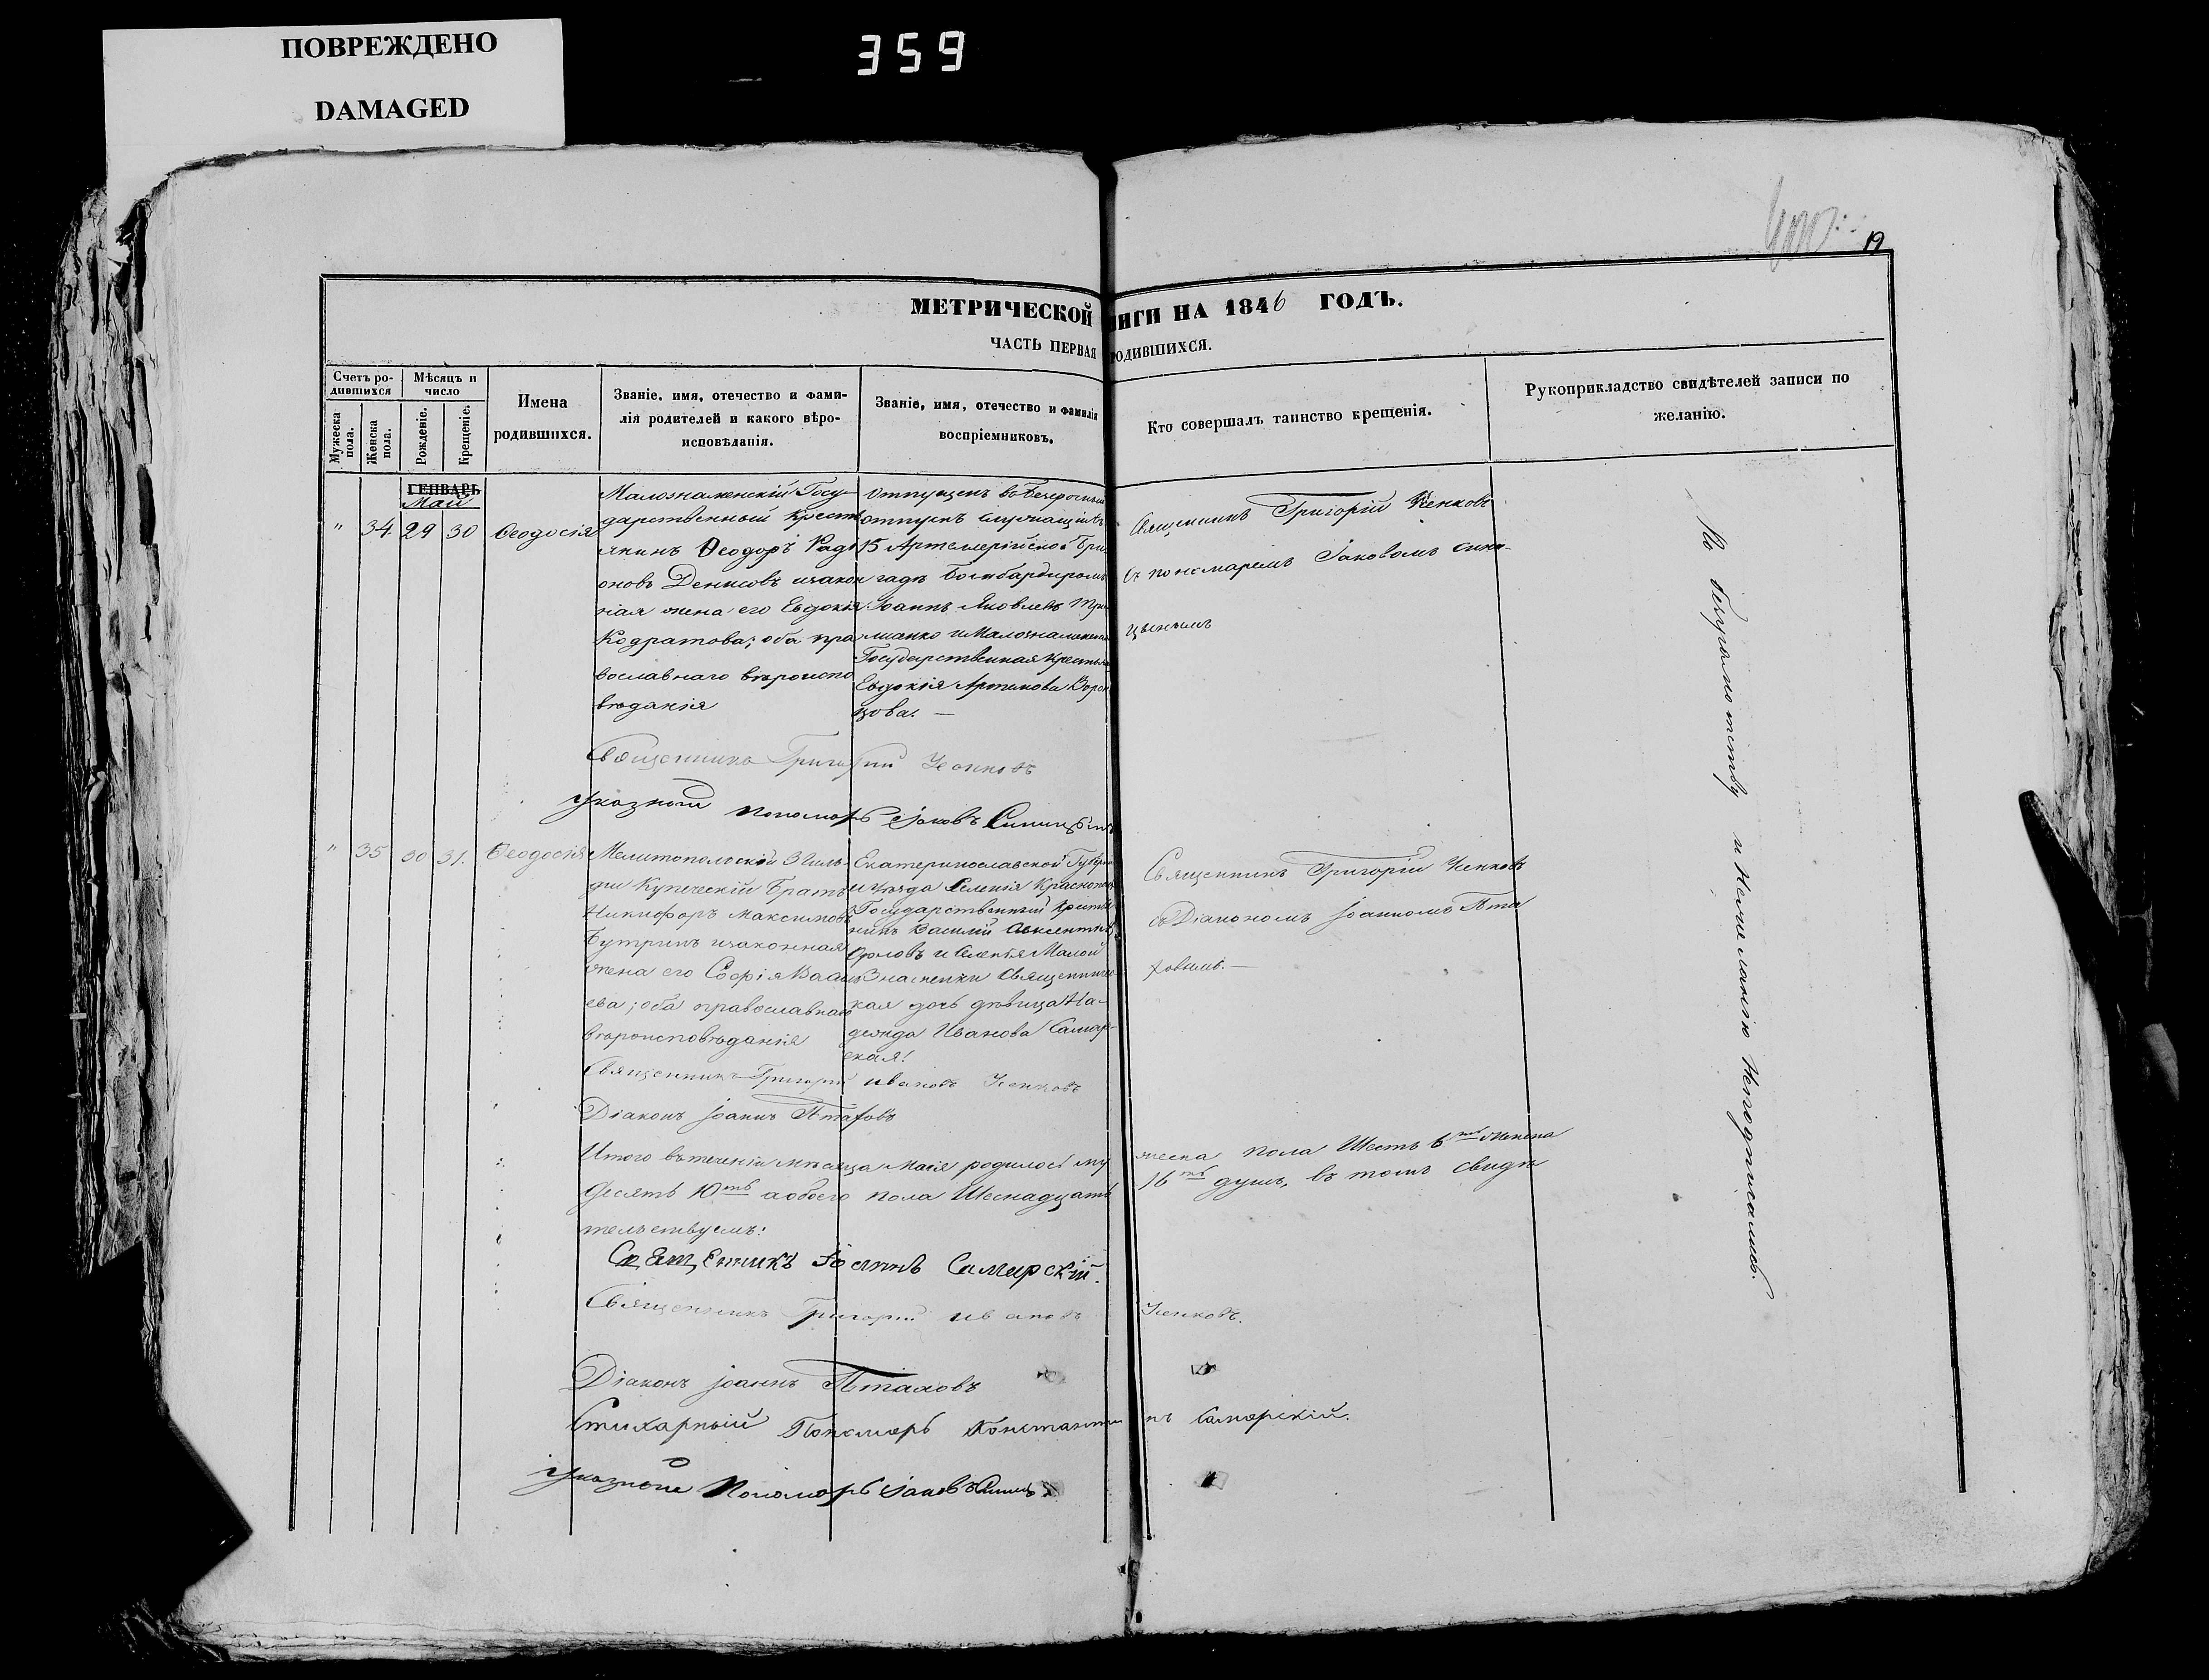 ПОВРЕЖДЕНО
DAMAGED
359
19
МЕТРИЧЕСКОЙ НИГИ НА 1846 ГОДЪ.
ЧАСТЬ ПЕРВАЯ РОДИВШИХСЯ.
Счетъ ро-
дившихся
Мужеска пола.
Женска пола.
Мѣсяцъ и
число
Рожденіе.
Крещеніе.
Имена
родившихся.
Званіе, имя, отечество и фами-
лія родителей и какого вѣро-
исповѣданія.
Званіе, имя, отечество и фамилія
воспріемниковъ.
Кто совершалъ таинство крещенія.
Рукоприкладство свидѣтелей записи по
желанію.
ГЕНВАРЬ
Май
" 34 29 30 Ѳеодосія
Малознаменскій Госу-
дарственный Кресть
янинъ Ѳеодоръ Роді
оновъ Денисовъ изакон
ная жена его Евдокія
Кодратова; оба пра
вославнаго вѣроиспо
вѣданія
отпускъ служащій въ
15 Артелерійской Бри
гадѣ Бомбардиромъ
Іоаннъ Яковлевъ
Государственная Крестьян
Евдокія Артемова Ворон
цова. —
Священникъ Григорій
съ пономаремъ Іаковомъ Сини-
цынымъ
Священникъ Григорій
Указной пономарь Іаковъ Синицынъ
" 35 30 31. Ѳеодосія
Мелитопольскій 3 Гиль-
діи Купеческій Братъ
Никифоръ Максимовъ
Бутринъ изаконная
жена его Софія Васил
ева; оба православнаго
вѣроисповѣданія
Екатеринославской Губерн
Государственный Крестья
нинъ Василій Авксентіевъ
Орловъ и селенія Малой
Знаменки Священниче
кая дочь дѣвица На-
дежда Иванова Самар-
ская!
Священникъ Григорій
съ Діакономъ Іоанномъ Пта
ховымъ. —
Священникъ Григорій Ивановъ
Діаконъ Іоаннъ Птаховъ
Итого втеченіи мѣсяца Маія родилось му жеска пола Шесть 6ть женска
десять 10ть а обоего пола Шеснадцать 16ть душъ, въ томъ свидѣ
тельствуемъ:
Священникъ Іоаннъ Самарскій.
Священникъ Григорій Ивановъ
Діаконъ Іоаннъ Птаховъ
Стихарный Пономарь Константинъ Самарскій.
Указной Пономарь Іаковъ
По безграмотству и Нежеланію Неподписались.